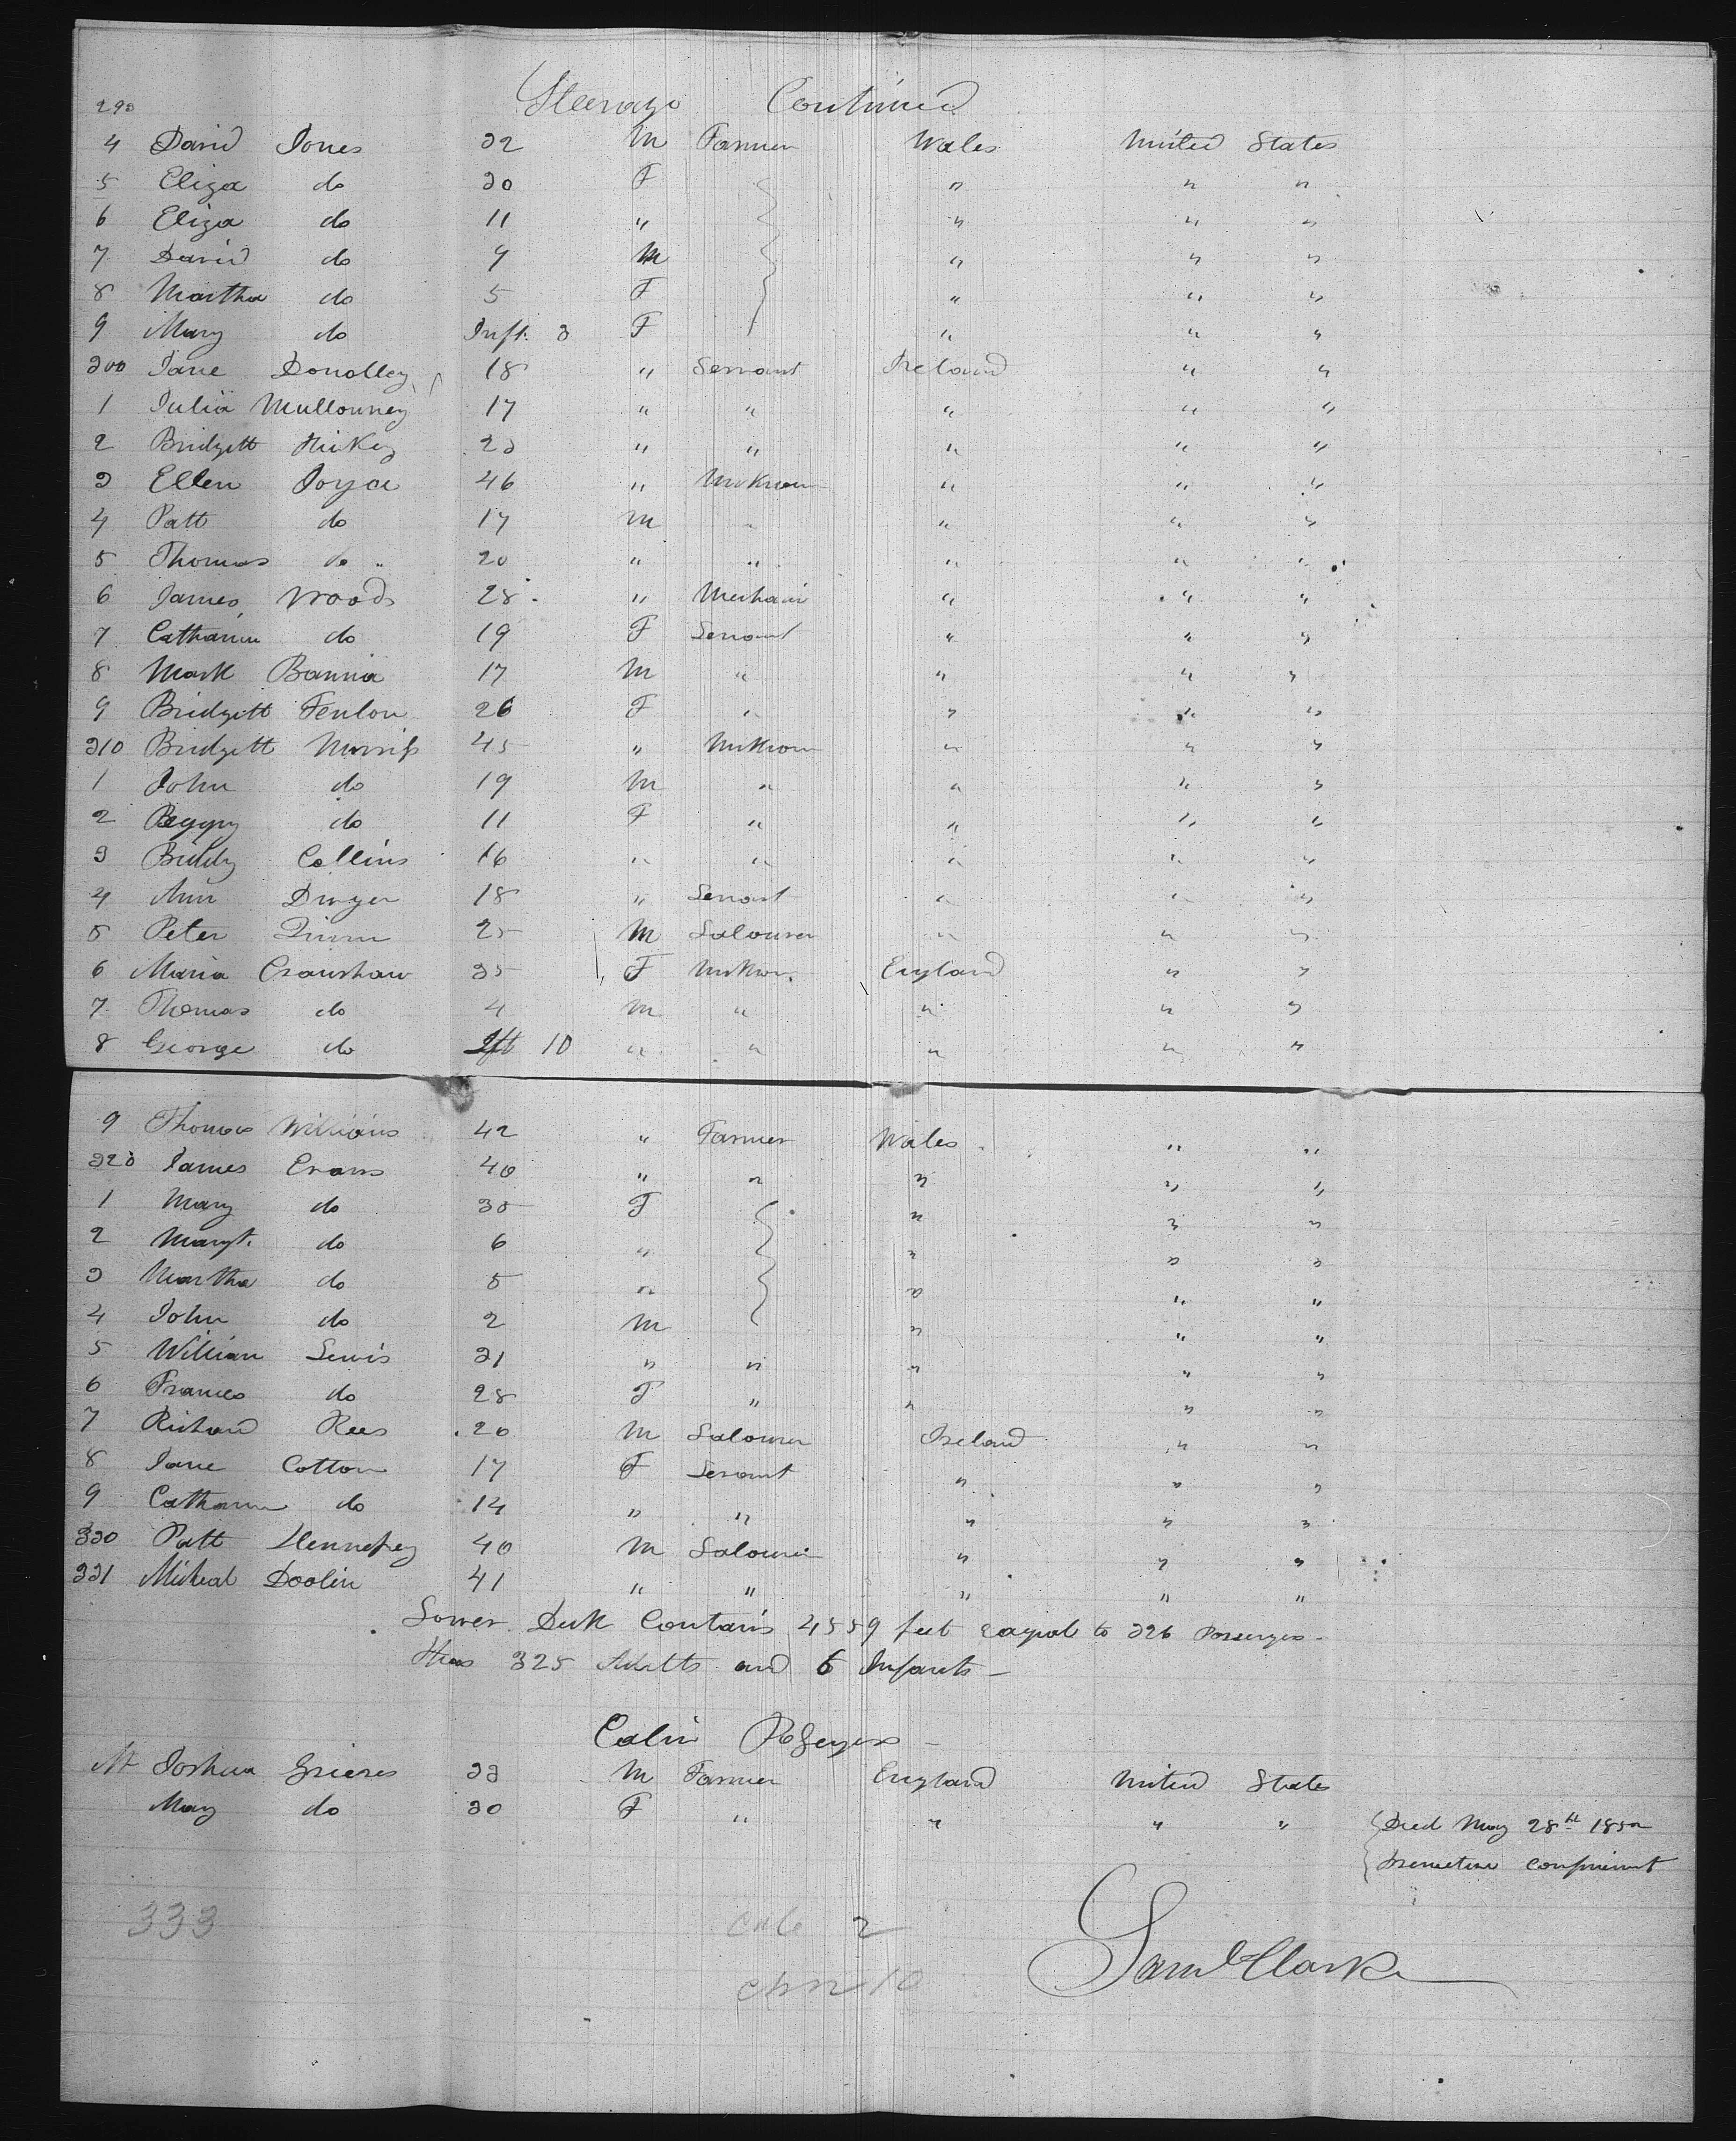 Steerage Continued
290
4 David Jones 32 M Farmer Wales United States
5 Eliza do 30 F " " "
6 Eliza do 11 " " " "
7 David do 9 M " " "
8 Martha do 5 F " " "
9 Mary do Inft. 3 F " " "
300 Jane Donolley 18 " Servant Ireland " "
1 Julia Mullowney 17 " " " " "
2 Bridgett Hickey 23 " " " " "
3 Ellen Joyce 46 " Unknown " " "
4 Patt do 17 M " " " "
5 Thomas do " 20 " " " " "
6 James Woods 28 " Mechanic " " "
7 Catharine do 19 F Servant " " "
8 Mark Bannia 17 M " " " "
9 Bridgett Fenlon 26 F " " " "
310 Bridgett Morriss 45 " Unknown " " "
1 John do 19 M " " " "
2 Peggy do 11 F " " " "
3 Biddy Collins 16 " " " " "
4 Ann Dwyer 18 " Servant " " "
5 Peter Quinn 25 M Labourer " " "
6 Maria Cranshaw 35 F Unknown England " "
7 Thomas do 4 M " " " "
8 George do Ift 10 " " " " "
9 Thomas Williams 42 " Farmer Wales " "
320 James Evans 40 " " " " "
1 Mary do 35 F " " "
2 Margt. do 6 " " " "
3 Martha do 5 " " " "
4 John do 2 M " " "
5 William Lewis 31 " " " " "
6 Frances do 28 F " " " "
7 Richard Rees 20 M Labourer Ireland " "
8 Jane Cotton 17 F Servant " " "
9 Catharine do 14 " " " " "
330 Patt Hennessey 40 M Labourer " " "
331 Micheal Doolin 41 " " " " "
Lower Deck Contains 4559 feet equal to 326 Passengers
Has 325 Adults and 6 Infants
Cabin
Mr Joshua Grieves 33 M Farmer England United States
Mary do 30 F " " " " Died May 28th 1852
premature confinement
333 cab 2
10
Saml Clark